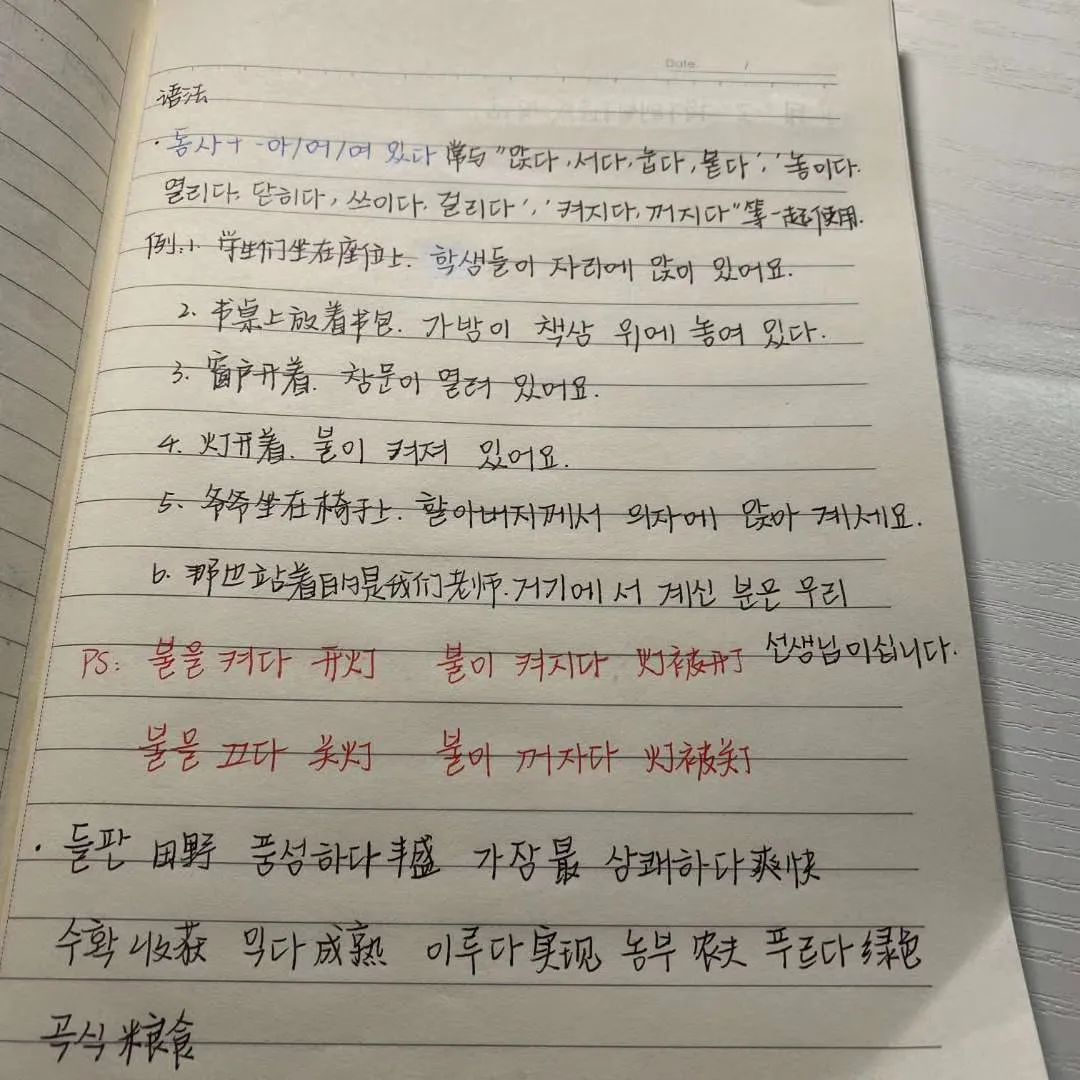 Date /
语法
· 동사+ -아/어/여 있다 常与"앉다, 서다, 눕다, 붙다', '놓이다.
열리다, 닫히다, 쓰이다, 걸리다', '켜지다, 꺼지다"等一起使用.
例:1. 学生们坐在座位上. 학생들이 자리에 앉이 있어요.
2. 书桌上放着书包. 가방이 책상 위에 놓여 있다.
3. 窗户开着. 창문이 열려 있어요.
4. 灯开着. 불이 켜져 있어요.
5. 爷爷坐在椅子上. 할아버지께서 의자에 앉아 계세요.
6. 那边站着的是我们老师. 거기에 서 계신 분은 우리
선생님이십니다.
PS: 불을 켜다 开灯 불이 켜지다 灯被开
불을 끄다 关灯 불이 꺼자다 灯被关
· 들판 田野 풍성하다 丰盛 가장 最 상쾌하다 爽快
수확 收获 익다 成熟 이루다 实现 농부 农夫 푸르다 绿色
곡식 粮食